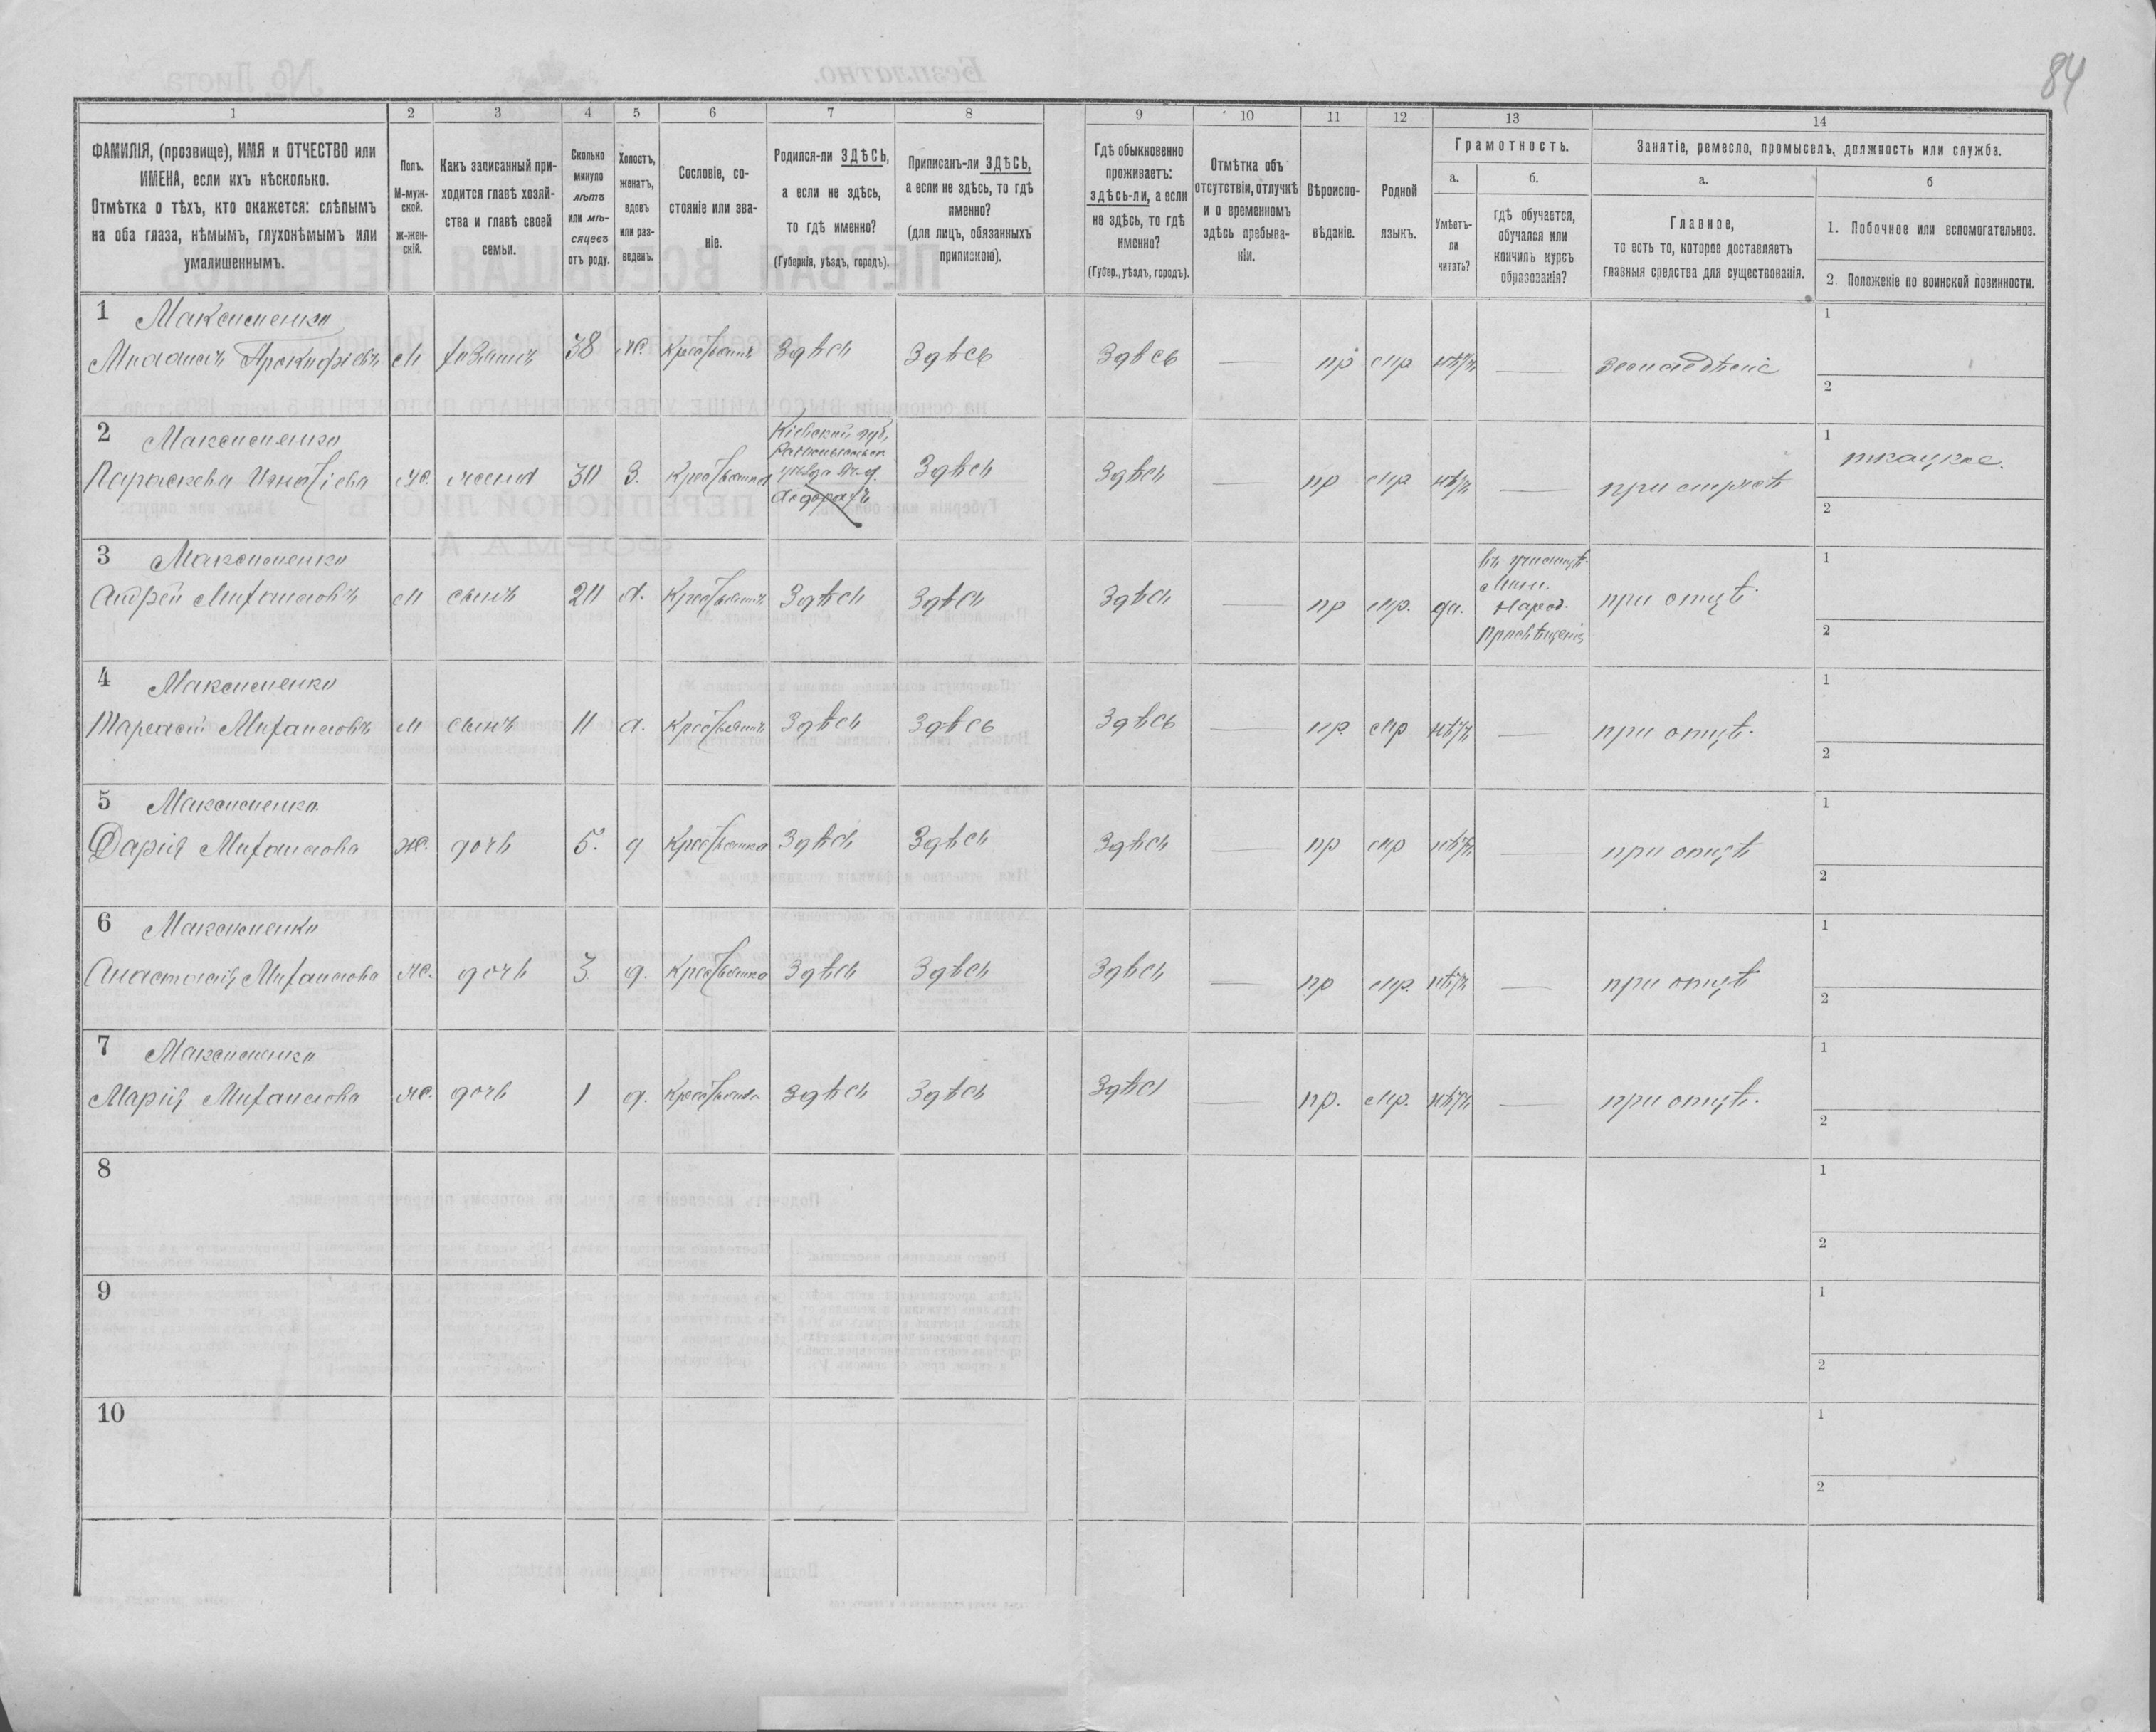 84
1
2
3
4
5
6
7
8
9
10
11
12
13
14
ФАМИЛІЯ, (прозвище), ИМЯ и ОТЧЕСТВО или
ИМЕНА, если ихъ нѣсколько.
Отмѣтка о тѣхъ, кто окажется: слѣпымъ
на оба глаза, нѣмымъ, глухонѣмымъ или
умалишеннымъ.
Полъ.
М-муж-
ской.
Ж-жен-
скій.
Какъ записанный при-
ходится главѣ хозяй-
ства и главѣ своей
семьи.
Сколько
минуло
лѣтъ
или мѣ-
сяцевъ
отъ роду.
Холостъ,
женатъ,
вдовъ
или раз-
веденъ.
Сословіе, со-
стояніе или зва-
ніе.
Родился-ли ЗДѢСЬ,
а если не здѣсь,
то гдѣ именно?
(Губернія, уѣздъ, городъ).
Приписанъ-ли ЗДѢСЬ,
а если не здѣсь, то гдѣ
именно?
(для лицъ, обязанныхъ
припискою).
Гдѣ обыкновенно
проживаетъ:
здѣсь-ли, а если
не здѣсь, то гдѣ
именно?
(Губер., уѣздъ, городъ).
Отмѣтка объ
отсутствіи, отлучкѣ
и о временномъ
здѣсь пребыва-
ніи.
Вѣроиспо-
вѣданіе.
Родной
языкъ.
Грамотность.
а.
Умѣетъ-
ли
читать?
б.
гдѣ обучается,
обучался или
кончилъ курсъ
образованія?
Занятіе, ремесло, промыселъ, должность или служба.
а.
Главное,
то есть то, которое доставляетъ
главныя средства для существованія.
б
1. Побочное или вспомогательное.
2. Положеніе по воинской повинности.
1 Максименко
Прокофіевъ М хозяинъ 38 ж. Крестьянинъ Здѣсь Здѣсь Здѣсь — пр мр нѣтъ — земледѣліе
1
2
2 Максименко
Параскева Игнатіева ж. жена 30 З. Крестьянка
Кіевской губ,
уѣзда
Здѣсь Здѣсь — пр мр нѣтъ — при мужѣ
1 ткацкое.
2
3 Максименко
Андрей Михаиловъ М сынъ 20 х. Крестьянинъ Здѣсь Здѣсь Здѣсь — пр мр. да.
въ училищѣ
Мин.
Народ.
Просвѣщенія
при отцѣ.
1
2
4 Максименко
Тарасій Михаиловъ М сынъ 11 х. Крестьянинъ Здѣсь Здѣсь Здѣсь — пр. мр нѣтъ — при отцѣ.
1
2
5 Максименко
Дарія Михаилова ж. дочь 5. д Крестьянка Здѣсь Здѣсь Здѣсь — пр мр нѣтъ — при отцѣ
1
2
6 Максименко
Анастасія Михаилова ж. дочь 3 д. Крестьянка Здѣсь Здѣсь Здѣсь — пр мр. нѣтъ — при отцѣ
1
2
7 Максименко
Марія Михаилова ж. дочь 1 д. Крестьянка Здѣсь Здѣсь Здѣсь — пр. мр. нѣтъ — при отцѣ.
1
2
8
1
2
9
1
2
10
1
2